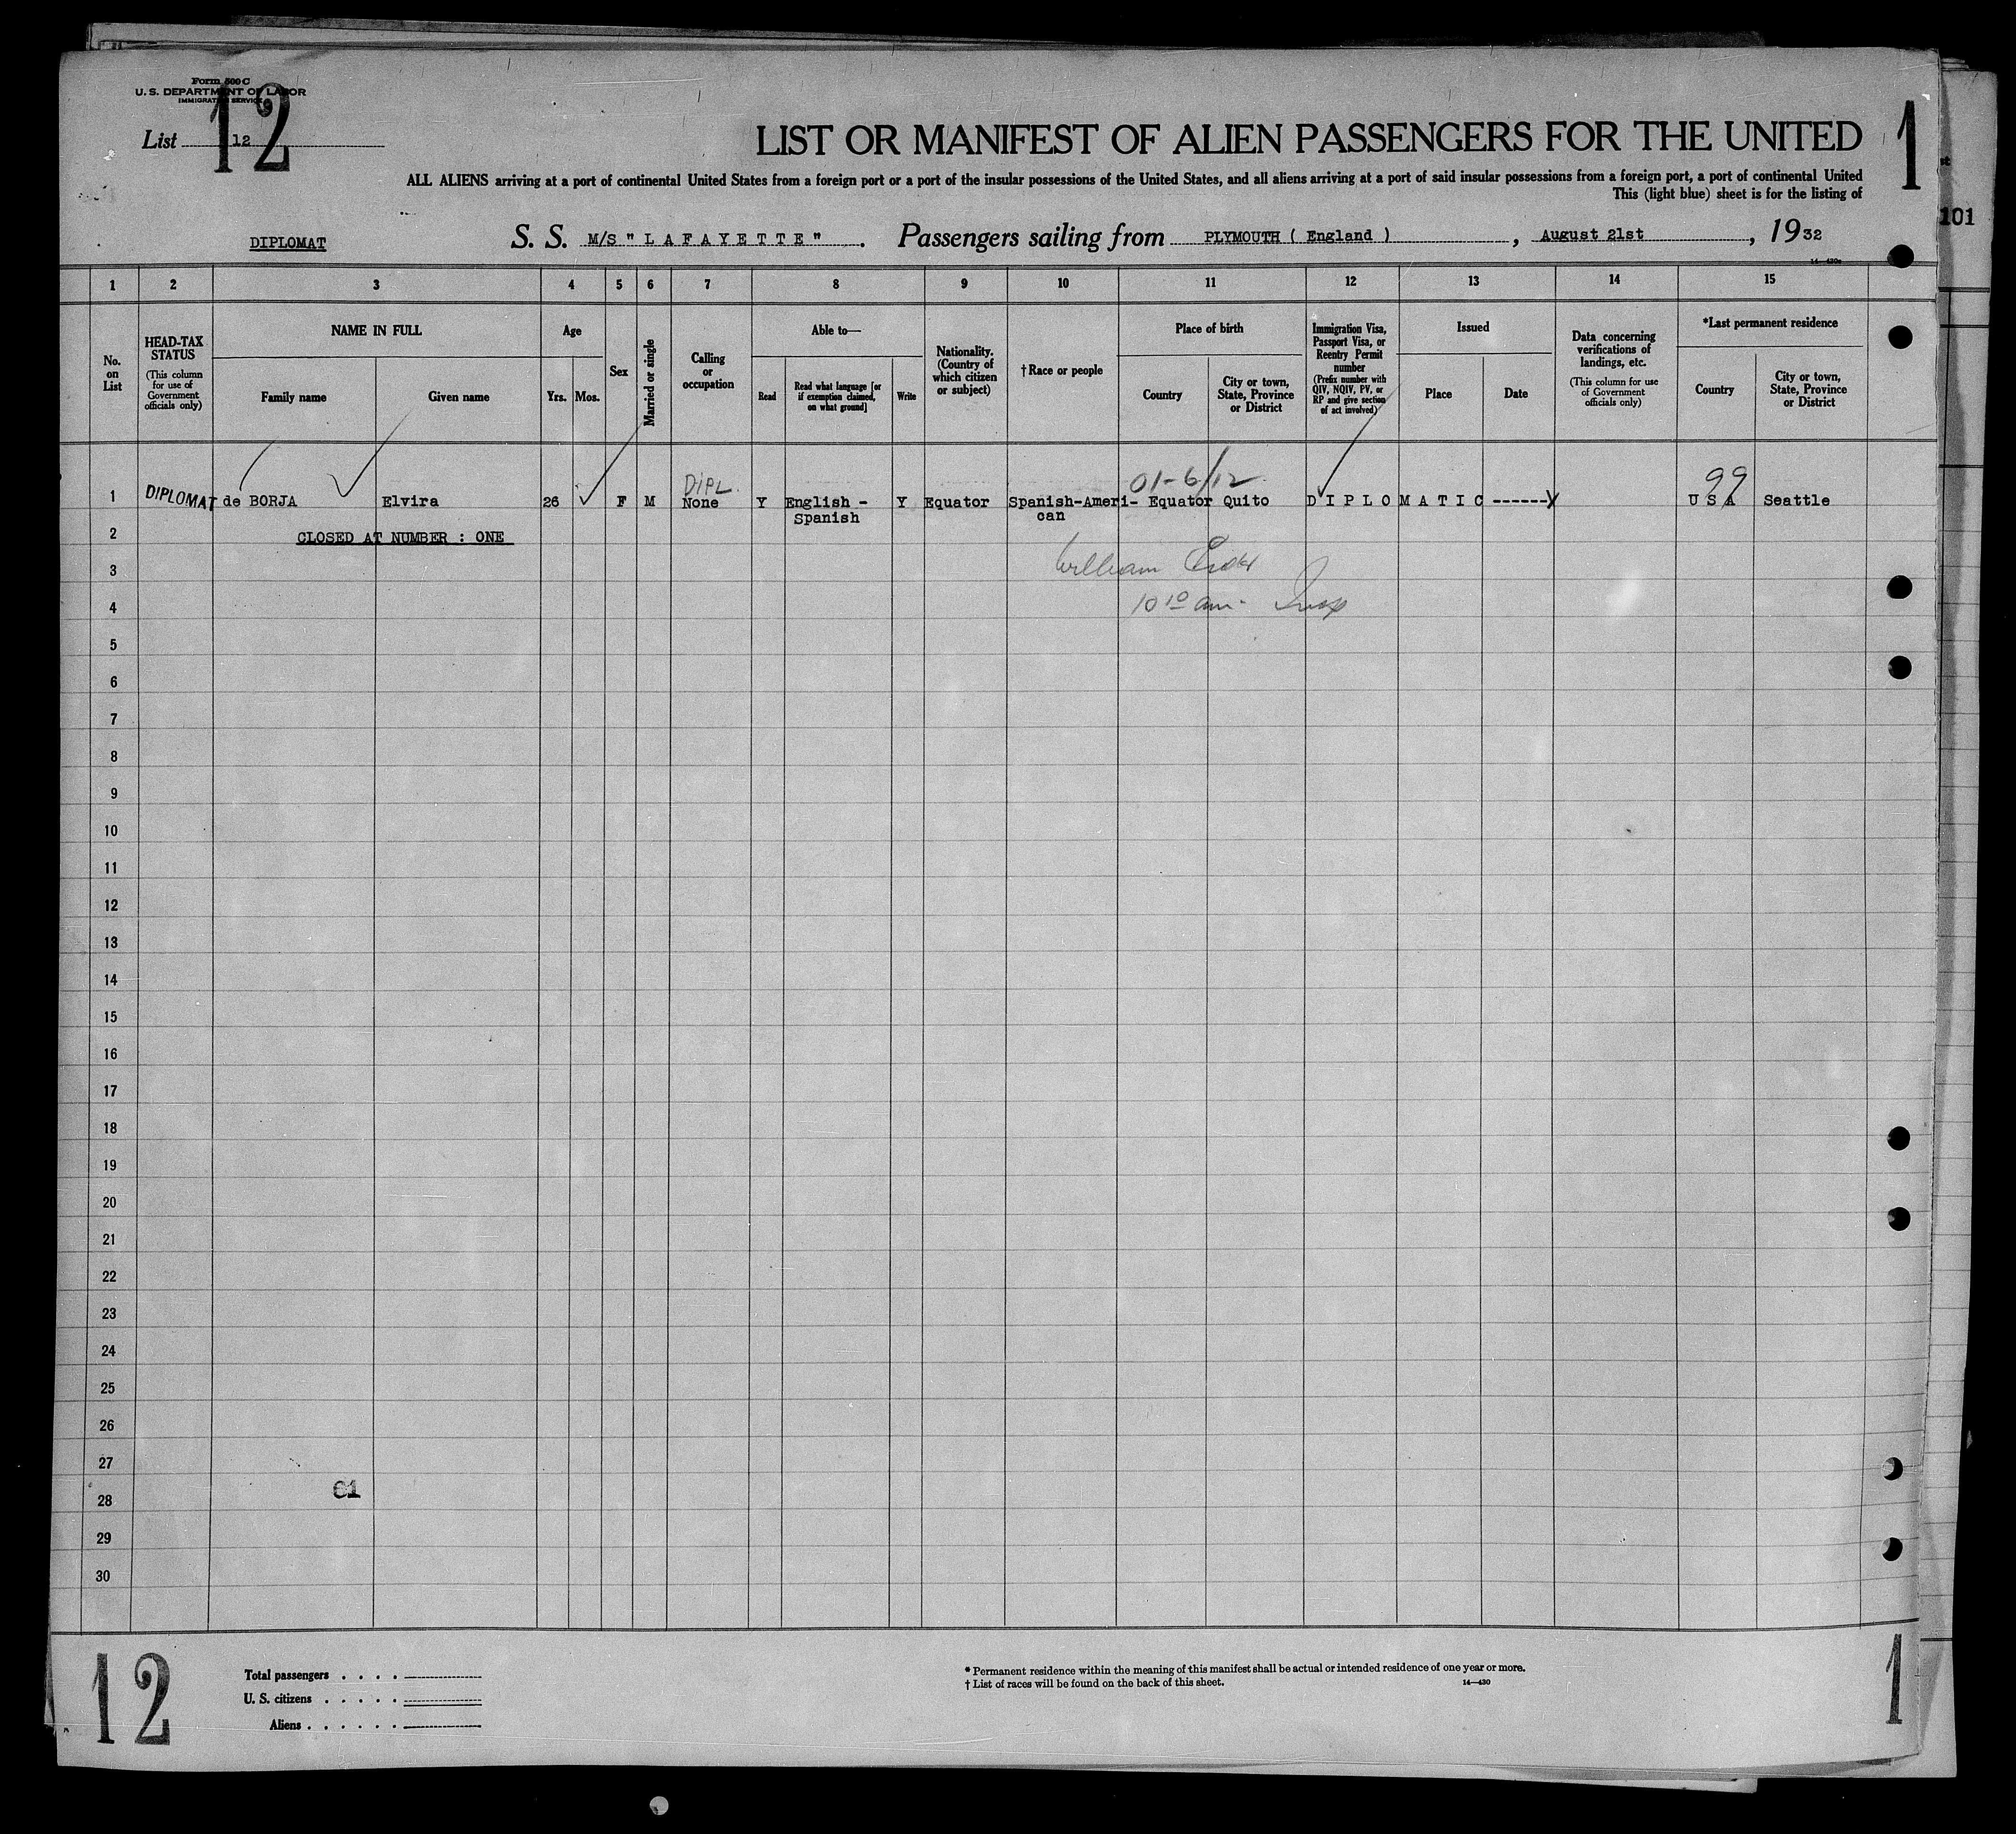 Form 500 C
U. S. DEPARTMENT OF LABOR
IMMIGRATION SERVICE
List 12
12
1
LIST OR MANIFEST OF ALIEN PASSENGERS FOR THE UNITED
ALL ALIENS arriving at a port of continental United States from a foreign port or a port of the insular possessions of the United States, and all aliens arriving at a port of said insular possessions from a foreign port, a port of continental United
This (light blue) sheet is for the listing of
101
DIPLOMAT S. S. M/S " L A F A Y E T T E " . Passengers sailing from PLYMOUTH ( England ) , August 21st , 1932
1 2 3 4 5 6 7 8 9 10 11 12 13 14 15
No. on List
HEAD-TAX STATUS
(This column for use of Government officials only)
NAME IN FULL
Family name
Given name
Age
Yrs. Mos.
Sex
Married or single
Calling or occupation
Able to—
Read
Read what language [or if exemption claimed, on what ground]
Write
Nationality. (Country of which citizen or subject)
†Race or people
Place of birth
Country
City or town, State, Province or District
Immigration Visa, Passport Visa, or Reentry Permit number
(Prefix number with QIV, NQIV, PV, or RP and give section of act involved)
Issued
Place
Date
Data concerning verifications of landings, etc.
(This column for use of Government officials only)
*Last permanent residence
Country
City or town, State, Province or District
DIPL. 01-6/12 99
1 DIPLOMAT de BORJA Elvira 26 F M None Y English - Y Equator Spanish-Ameri- Equator Quito D I P L O M A T I C ------ U S A Seattle
Spanish can
2 CLOSED AT NUMBER : ONE
3 William
4 10 10 am. Insp
5
6
7
8
9
10
11
12
13
14
15
16
17
18
19
20
21
22
23
24
25
26
27
28
29
30
12
Total passengers . . . .
U. S. citizens . . . . .
Aliens . . . . . .
* Permanent residence within the meaning of this manifest shall be actual or intended residence of one year or more.
† List of races will be found on the back of this sheet. 14—430
1